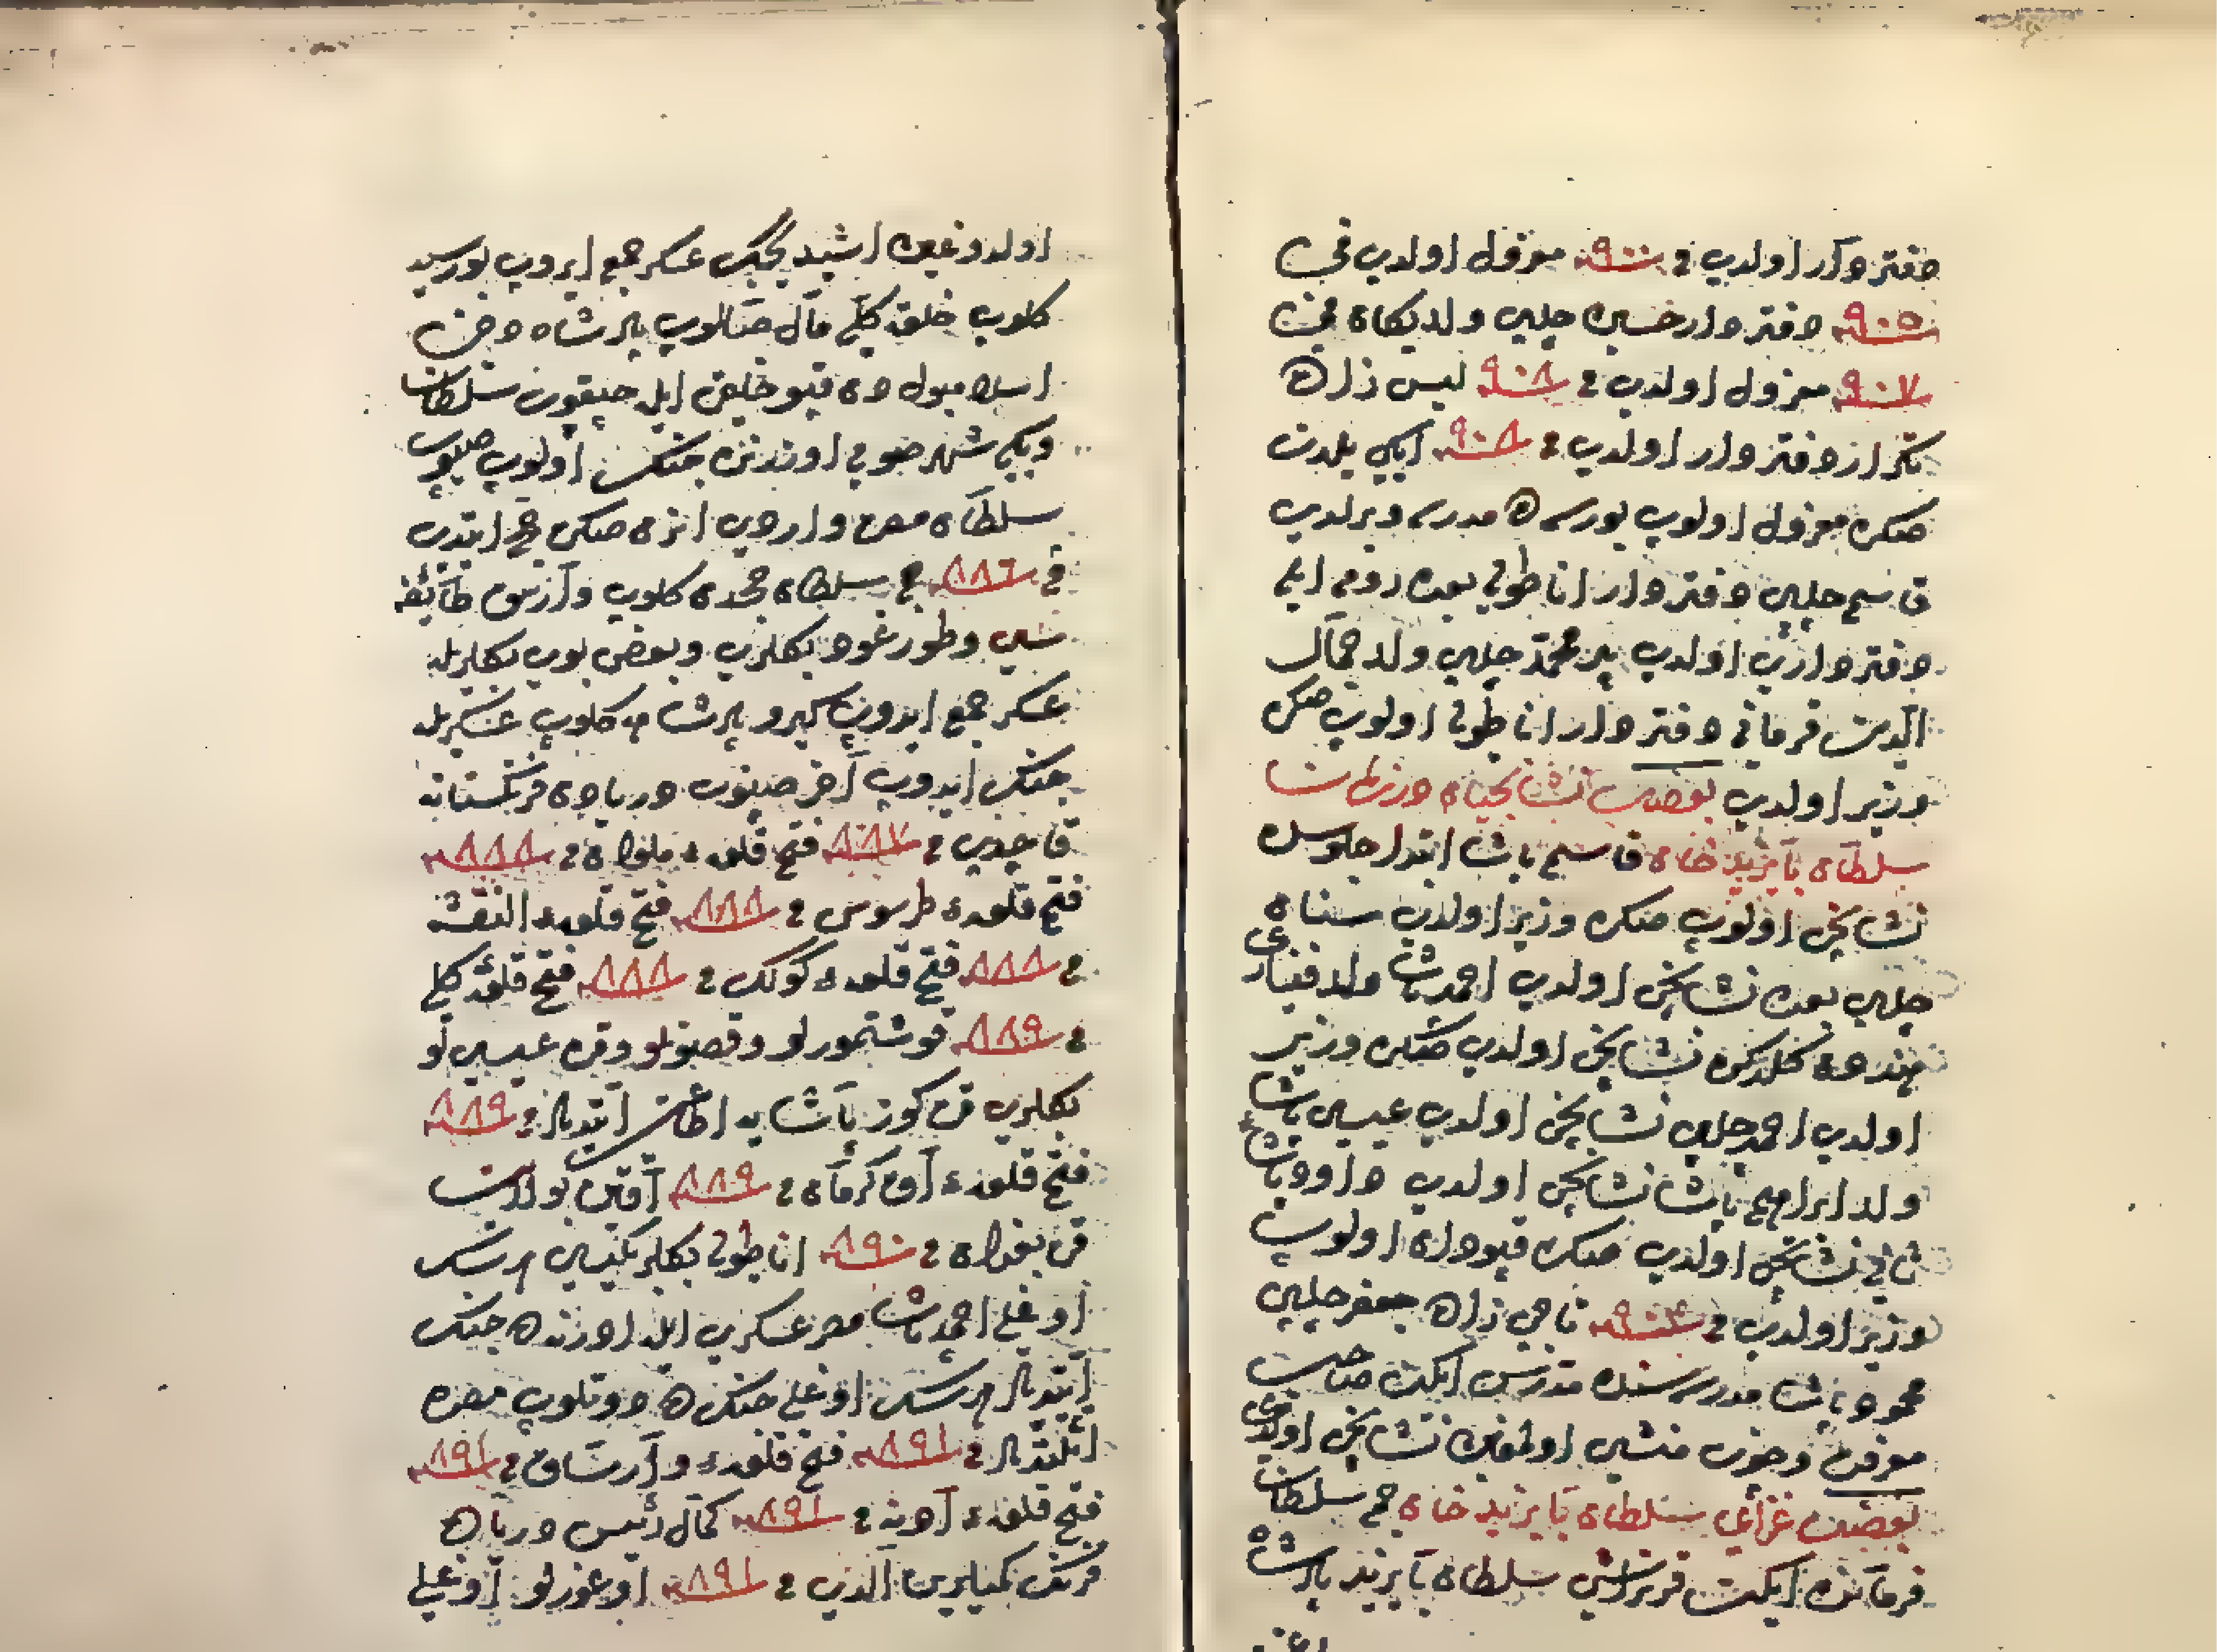 دفتردار اولدی فی سنه ٩٠٠ معزول اولدی فی
سنه ٩٠٥ دفتردار حسین چلبی ولد یکان فی
سنه ٩٠٧ معزول اولدی فی سنه ٩٠٨ لیس زاده
تکرار دفتردار اولدی فی سنه ٩٠٨ ایکی یلدن
صکره معزول اولوب بورسه ده مدرسه ویرلدی
قاسم چلبی دفتردار اناطولی بعده روم ایلی
دفترداری اولدی پیر محمد چلبی ولد جمال
الدین قرمانی دفتردار اناطولی اولوب صکره
وزیر اولدی بعضی نشانجیان در زمان
سلطان بایزید خان قاسم پاشا ابتدا جلوسده
نشانجی اولوب صکره وزیر اولدی سنان
چلبی بعده نشانجی اولدی احمد پاشا ولد فناری
هندده کلدکده نشانجی اولدی صکره وزیر
اولدی احمد چلبی نشانجی اولدی عیسی پاشا
ولد ابراهیم پاشا نشانجی اولدی داود پاشا
ثانی نشانجی اولدی صکره قپودان اولوب
وزیر اولدی فی سنه ٩٠٤ ناجی زاده جعفر چلبی
محمود پاشا مدرسه سنده مدرس ایکن صاحب
معرفت وخوب منشی اولمغین نشانجی اولدی
بعضی غزای سلطان بایزید خان جم سلطان
قرمانده ایکن قرنداشی سلطان بایزید پادشاه
اولدوغین اشیدیجک عسکر جمع ایدوب بورسیه
کلوب خلقه کلی مال صالوب پادشاه دخی
اسلامبولده قپو خلقی ایله چیقوب سلطان
ویکی شهر صویی اوزرنده جنک اولوب صنوب
سلطان مصره واردی اندن صکره حج ایتدی
فی سنه ٨٨٦ جم سلطان حجدن کلوب وارسق طائفه
سی وطورغود بکلری وبعضی بوی بکلریله
عسکر جمع ایدوب کیرو پادشاه کلوب عسکریله
جنک ایدوب آخر صنوب دریادن فرنکستانه
قاچدی فی سنه ٨٨٧ فتح قلعه ملوان فی سنه ٨٨٨
فتح قلعه طرسوس فی سنه ٨٨٨ فتح قلعه النقش
فی سنه ٨٨٨ فتح قلعه کولک فی سنه ٨٨٨ فتح قلعه کلی
فی سنه ٨٨٩ قوشتمورلو وقصونلو وقره عیسی لو
بکلری قره کوز پاشایه اطاعت ایتدیلر فی سنه ٨٨٩
فتح قلعه آق کرمان فی سنه ٨٨٩ آقین بولادن
قره بغدان فی سنه ٨٩٠ اناطولی بکلربکیسی هرسک
اوغلی احمد پاشا مصر عسکری ایله ادرنده جنک
ایتدیلر هرسک اوغلی جنکده دوتلوب مصره
ایلتدیلر فی سنه ٨٩١ فتح قلعه وارساق فی سنه ٨٩١
فتح قلعه آدنه فی سنه ٨٩١ کمال رئیس دریاده
فرنک کمیلرین آلدی فی سنه ٨٩١ اوغورلو اوغلی